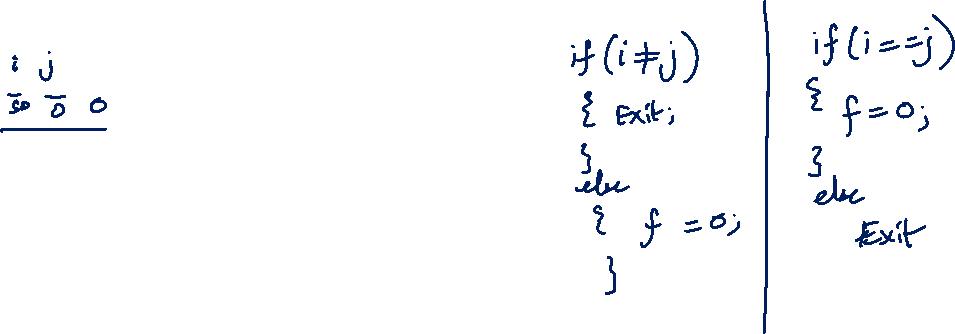 i j
50 0 0
if (i ≠ j)
{ Exit;
}
else
{ f = 0;
}
if (i == j)
{ f = 0;
}
else
Exit